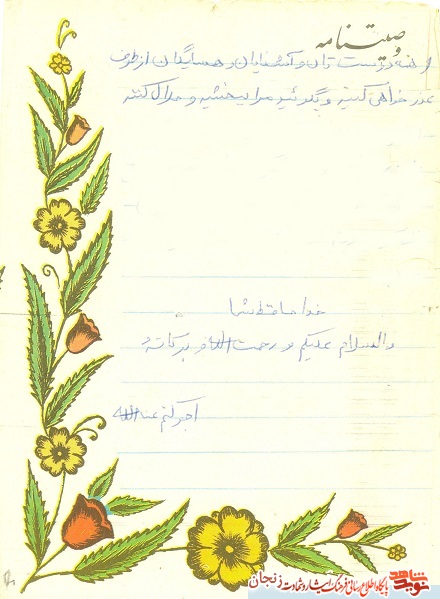 وصیتنامه
از همه دوستان و آشنایان و همسایگان از طرف
عذر خواهی کنید و بگوئید مرا ببخشید و حلال کنند
خدا حافظ شما
والسلام علیکم و رحمت الله و برکاته
اجرکم عند الله
نوید شاهد
پایگاه اطلاع رسانی فرهنگ ایثار و شهادت زنجان